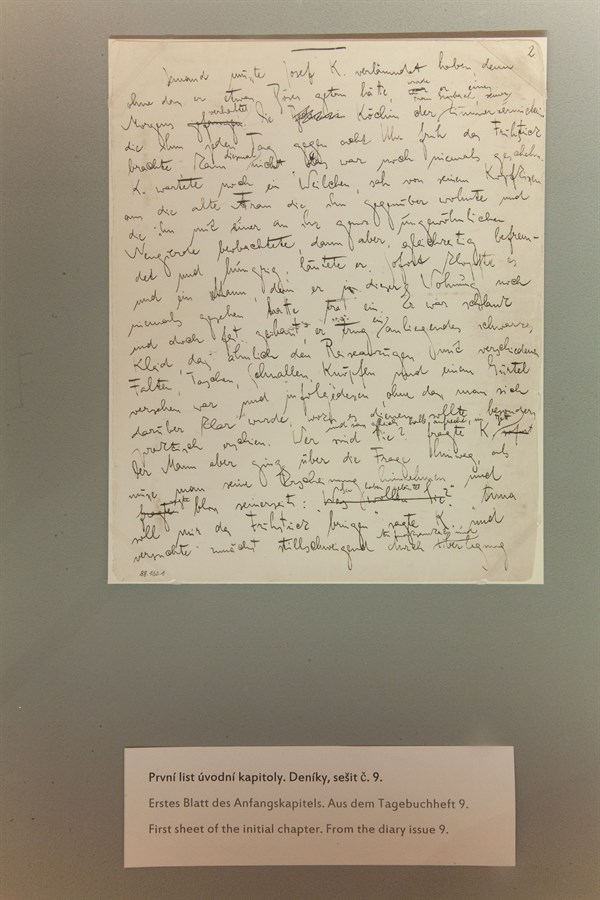 2
Jemand mußte Josef K. verläumdet haben denn
ohne daß er etwas Böses getan hätte, wurde er eines
Morgens verhaftet gefangen. Die Köchin der Zimmervermieterin
die ihm jeden Tag gegen acht Uhr früh das Frühstück
brachte, kam diesmal nicht. Das war noch niemals geschehn.
K. wartete noch ein Weilchen, sah von seinem Kopfkissen
aus die alte Frau die ihm gegenüber wohnte und
die ihn mit einer an ihr ganz ungewöhnlichen
Neugierde beobachtete, dann aber, gleichzeitig befrem-
det und hungrig, läutete er. Sofort klopfte es
und ein Mann, den er in dieser Wohnung noch
niemals gesehen hatte trat ein. Er war schlank
und doch fest gebaut, er trug ein anliegendes schwarzes
Kleid, das ähnlich den Reiseanzügen mit verschiedenen
Falten, Taschen, Schnallen, Knöpfen und einem Gürtel
versehen war und infolgedessen, ohne daß man sich
darüber klar wurde, wozu es dienen sollte, besonders
praktisch erschien. Wer sind Sie? fragte K.
und saß gleich halb aufrecht im Bett
Der Mann aber ging über die Frage hinweg, als
müsse man seine Erscheinung hinnehmen und
fragte sagte bloß seinerseits: Sie haben geläutet? Was wollen Sie? "Anna
soll mir das Frühstück bringen" sagte K. und
versuchte zunächst stillschweigend durch Aufmerksamkeit und Überlegung
První list úvodní kapitoly. Deníky, sešit č. 9.
Erstes Blatt des Anfangskapitels. Aus dem Tagebuchheft 9.
First sheet of the initial chapter. From the diary issue 9.